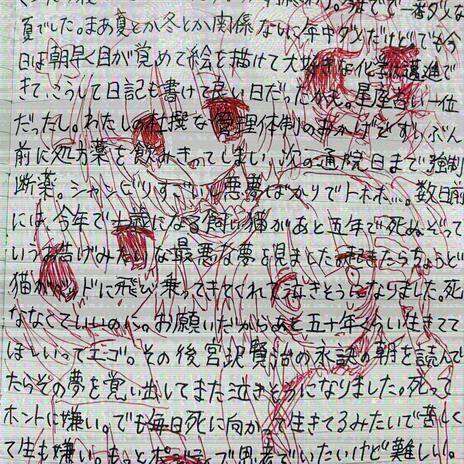 夏でした。まあ夏とか冬とか関係なしに年中ダメだけどでも今
日は朝早く目が覚めて絵を描けて大好きな化学に邁進で
きて、こうして日記も書けて良い日だったかも。星座占い一位
だったし。わたしの杜撰な管理体制のおかげでずいぶん
前に処方薬を飲みきってしまい、次の通院日まで強制
断薬。シャンビリすごいし悪夢ばかりでトホホ…。数日前
には、今年で十歳になる飼い猫があと五年で死ぬぞって
いうお告げみたいな最悪な夢を見ました。起きたらちょうど
猫がベッドに飛び乗ってきてくれて泣きそうになりました。死
ななくていーのに。お願いだからあと五十年くらい生きてて
ほしいってエゴ。その後宮沢賢治の永訣の朝を読んで
たらその夢を覚い出してまた泣きそうになりました。死って
ホントに嫌い。でも毎日死に向かって生きてるみたいで苦しく
て生も嫌い。もっとポジティブで思考でいたいけど難しい。